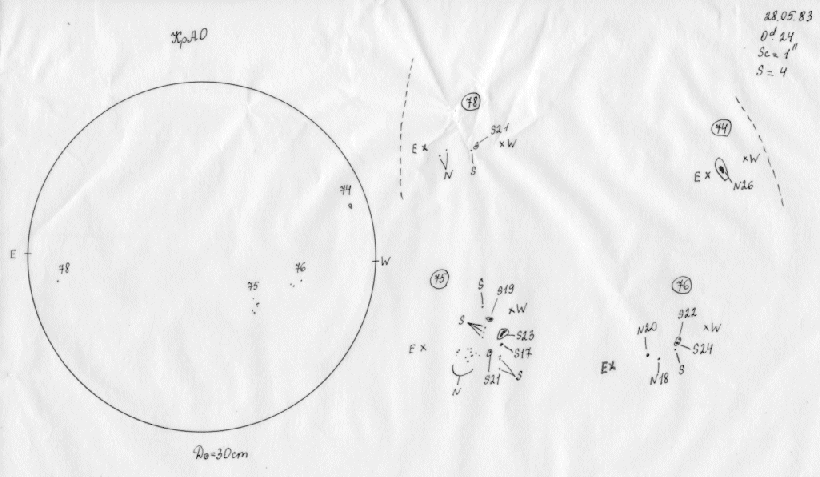 КрАО
28.05.83
0d 24
Sc = 1"
S = 4
E
W
74
78
75
76
D₀=30cm
78
S21
E x
x W
N
S
44
x W
E x
N26
75
S
S19
x W
S
S23
E x
S17
S21
S
N
76
S22
N20
x W
S24
E x
N18
S